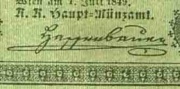 Wien am 1. Juli 1849.
K. K. Haupt-Münzamt.
Hassenbauer